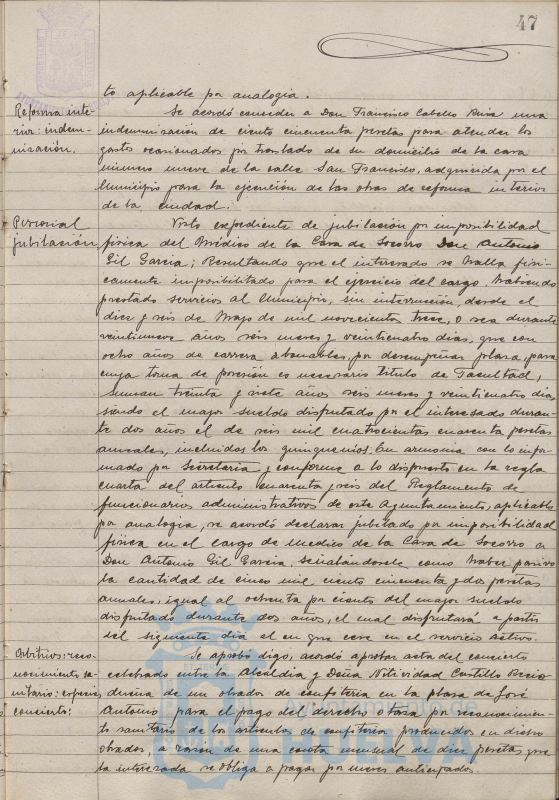 47
to aplicable por analogia.
Reforma inte-
rior: indem-
nización.
Se acordó conceder a Don Francisco Cabello Ruiz una
indemnizacion de ciento cincuenta pesetas para atender los
gastos ocasionados por traslado de su domicilio de la casa
número nueve de la calle San Francisco, adquirida por el
Municipio para la ejecución de las obras de reforma interior
de la ciudad.
Personal
jubilación
Visto expediente de jubilación por imposibilidad
fisica del Médico de la Casa de Socorro Don Antonio
Gil Garcia; Resultando que el interesado se halla fisi-
camente imposibilitado para el ejercicio del cargo, habiendo
prestado servicios al Municipio, sin interrupción, desde el
diez y seis de Mayo de mil novecientos trece, o sea durante
veintinueve años seis meses y veinticuatro dias, que con
ocho años de carrera abonables, por desempeñar plaza, para
cuya toma de posesión es necesario titulo de Facultad,
suman treinta y siete años seis meses y veinticuatro dias
siendo el mayor sueldo disfrutado por el interesado duran-
te dos años el de seis mil cuatrocientas cuarenta pesetas
anuales, incluidos los quinquenios. En armonia con lo infor-
mado por Secretaria y conforme a lo dispuesto en la regla
cuarta del articulo cuarenta y seis del Reglamento de
funcionarios administrativos de este Ayuntamiento, aplicable
por analogia, se acordó declarar jubilado por imposibilidad
fisica en el cargo de medico de la Casa de Socorro a
Don Antonio Gil Garcia, señalándosele como haber pasivo
la cantidad de cinco mil ciento cincuenta y dos pesetas
anuales, igual al ochenta por ciento del mayor sueldo
disfrutado durante dos años, el cual disfrutará a partir
del siguiente dia al en que cese en el servicio activo.
Arbitrios: reco-
nocimiento sa-
nitario:
concierto:
Se aprobó digo, acordó aprobar acta del concierto
celebrado entre la Alcaldia y Doña Natividad Castillo
dueña de un obrador de confiteria en la plaza de José
Antonio para el pago del derecho o tasa por reconocimien-
to sanitario de los articulos de confiteria producidos en dicho
obrador, a razón de una cuota mensual de diez pesetas que
la interesada se obliga a pagar por meses anticipados.
Ayuntamiento de
HUELVA